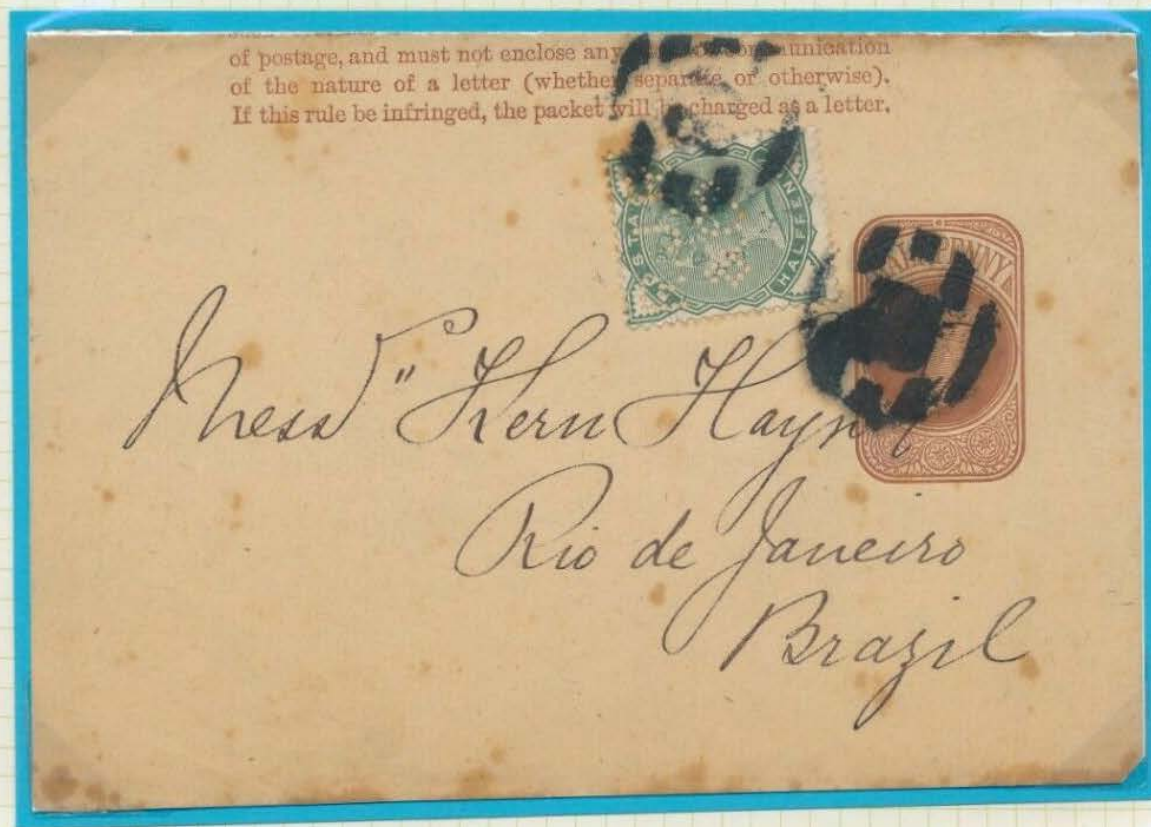 of postage, and must not enclose any communication
of the nature of a letter (whether separate or otherwise).
If this rule be infringed, the packet will be charged as a letter.
POSTAGE
HALFPENNY
HALFPENNY
Messrs Kern Hayn
Rio de Janeiro
Brazil